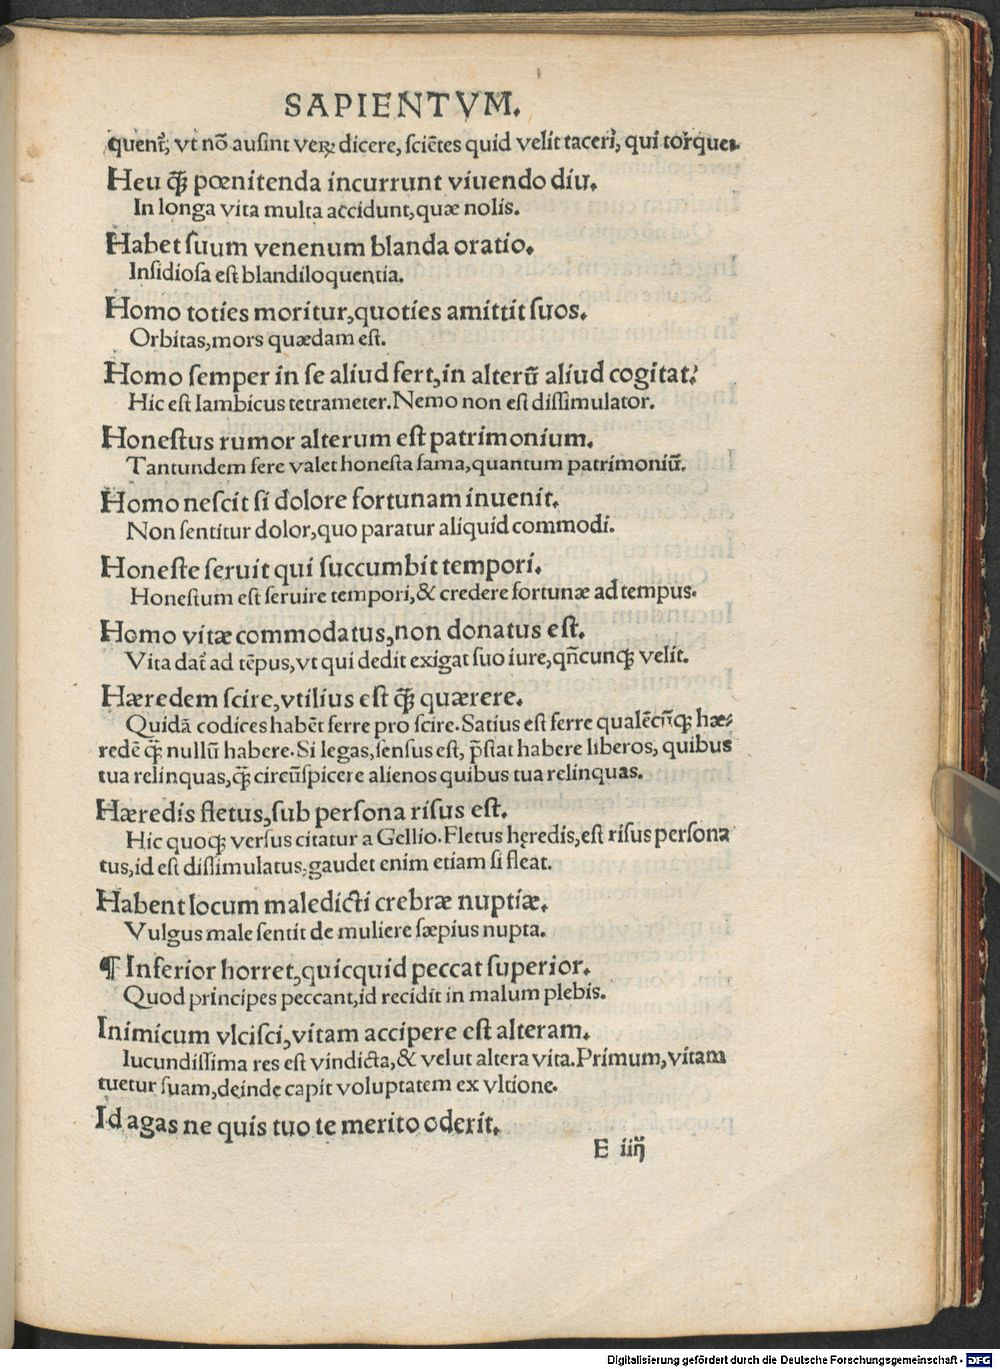 SAPIENTVM.
quent᷑, vt nō ausint veꝝ dicere, sciētes quid velit taceri, qui torquet.
Heu q̄ꝫ pœnitenda incurrunt viuendo diu.
In longa vita multa accidunt, quæ nolis.
Habet suum venenum blanda oratio.
Insidiosa est blandiloquentia.
Homo toties moritur, quoties amittit suos.
Orbitas, mors quædam est.
Homo semper in se aliud fert, in alterū aliud cogitat.
Hic est Iambicus tetrameter. Nemo non est dissimulator.
Honestus rumor alterum est patrimonium.
Tantundem fere valet honesta fama, quantum patrimoniū.
Homo nescit si dolore fortunam inuenit.
Non sentitur dolor, quo paratur aliquid commodi.
Honeste seruit qui succumbit tempori.
Honestum est seruire tempori, & credere fortunæ ad tempus.
Homo vitæ commodatus, non donatus est.
Vita dat᷑ ad tēpus, vt qui dedit exigat suo iure, qn̄cunqꝫ velit.
Hæredem scire, vtilius est q̄ꝫ quærere.
Quidā codices habēt ferre pro scire. Satius est ferre qualēcūqꝫ hæ⸗
redē q̄ꝫ nullū habere. Si legas, sensus est, p̄stat habere liberos, quibus
tua relinquas, q̄ꝫ circūspicere alienos quibus tua relinquas.
Hæredis fletus, sub persona risus est.
Hic quoqꝫ versus citatur a Gellio. Fletus hęredis, est risus persona
tus, id est dissimulatus, gaudet enim etiam si fleat.
Habent locum maledicti crebræ nuptiæ.
Vulgus male sentit de muliere sæpius nupta.
¶ Inferior horret, quicquid peccat superior.
Quod principes peccant, id recidit in malum plebis.
Inimicum vlcisci, vitam accipere est alteram.
Iucundissima res est vindicta, & velut altera vita. Primum, vitam
tuetur suam, deinde capit voluptatem ex vltione.
Id agas ne quis tuo te merito oderit.
E iiij
Digitalisierung gefördert durch die Deutsche Forschungsgemeinschaft - DFG